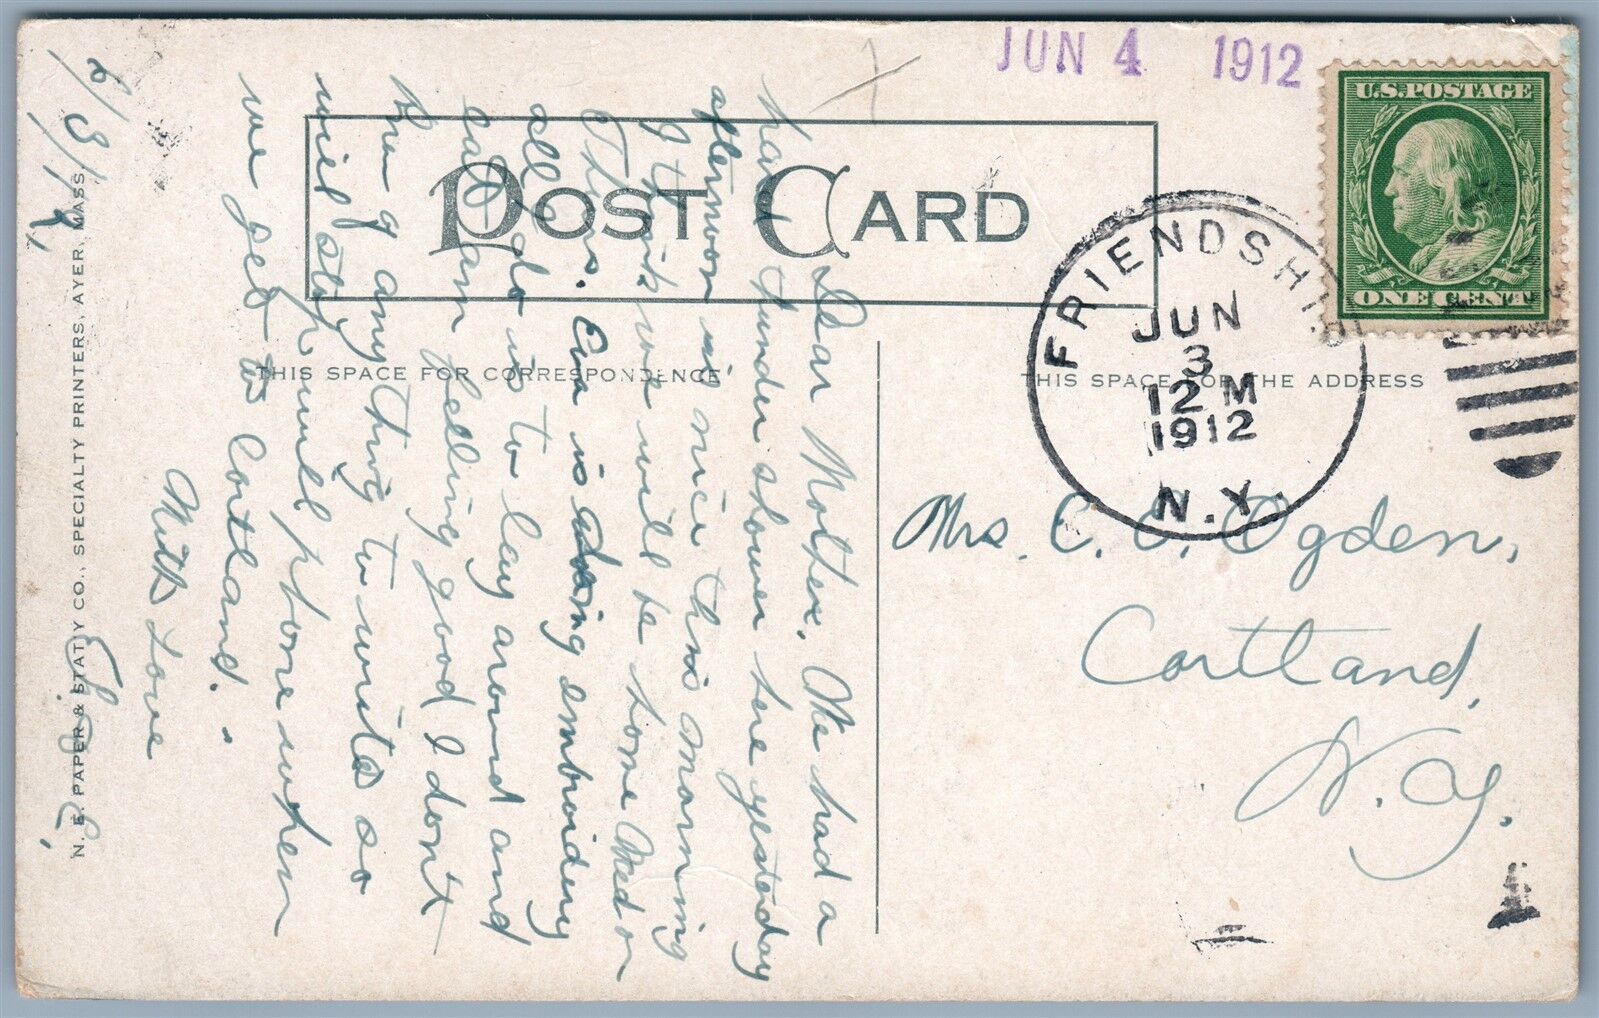 JUN 4 1912
U.S. POSTAGE
ONE CENT
POST CARD
FRIENDSHIP
JUN
3
12 M
1912
N.Y.
THIS SPACE FOR CORRESPONDENCE
THIS SPACE FOR THE ADDRESS
Mrs. C. C. Ogden,
Cortland,
N. Y.
6/3/12,
Dear Mother, We had a
hard thunder shower here yesterday
afternoon is nice this morning
I think we will be home Wed or
Thurs. Eva is doing embroidery
all I do is to lay around and
eat am feeling good I don't
know of any thing to write so
will stop will phone when
we get to Cortland.
With Love
N. E. PAPER & STAT'Y CO., SPECIALTY PRINTERS, AYER, MASS.